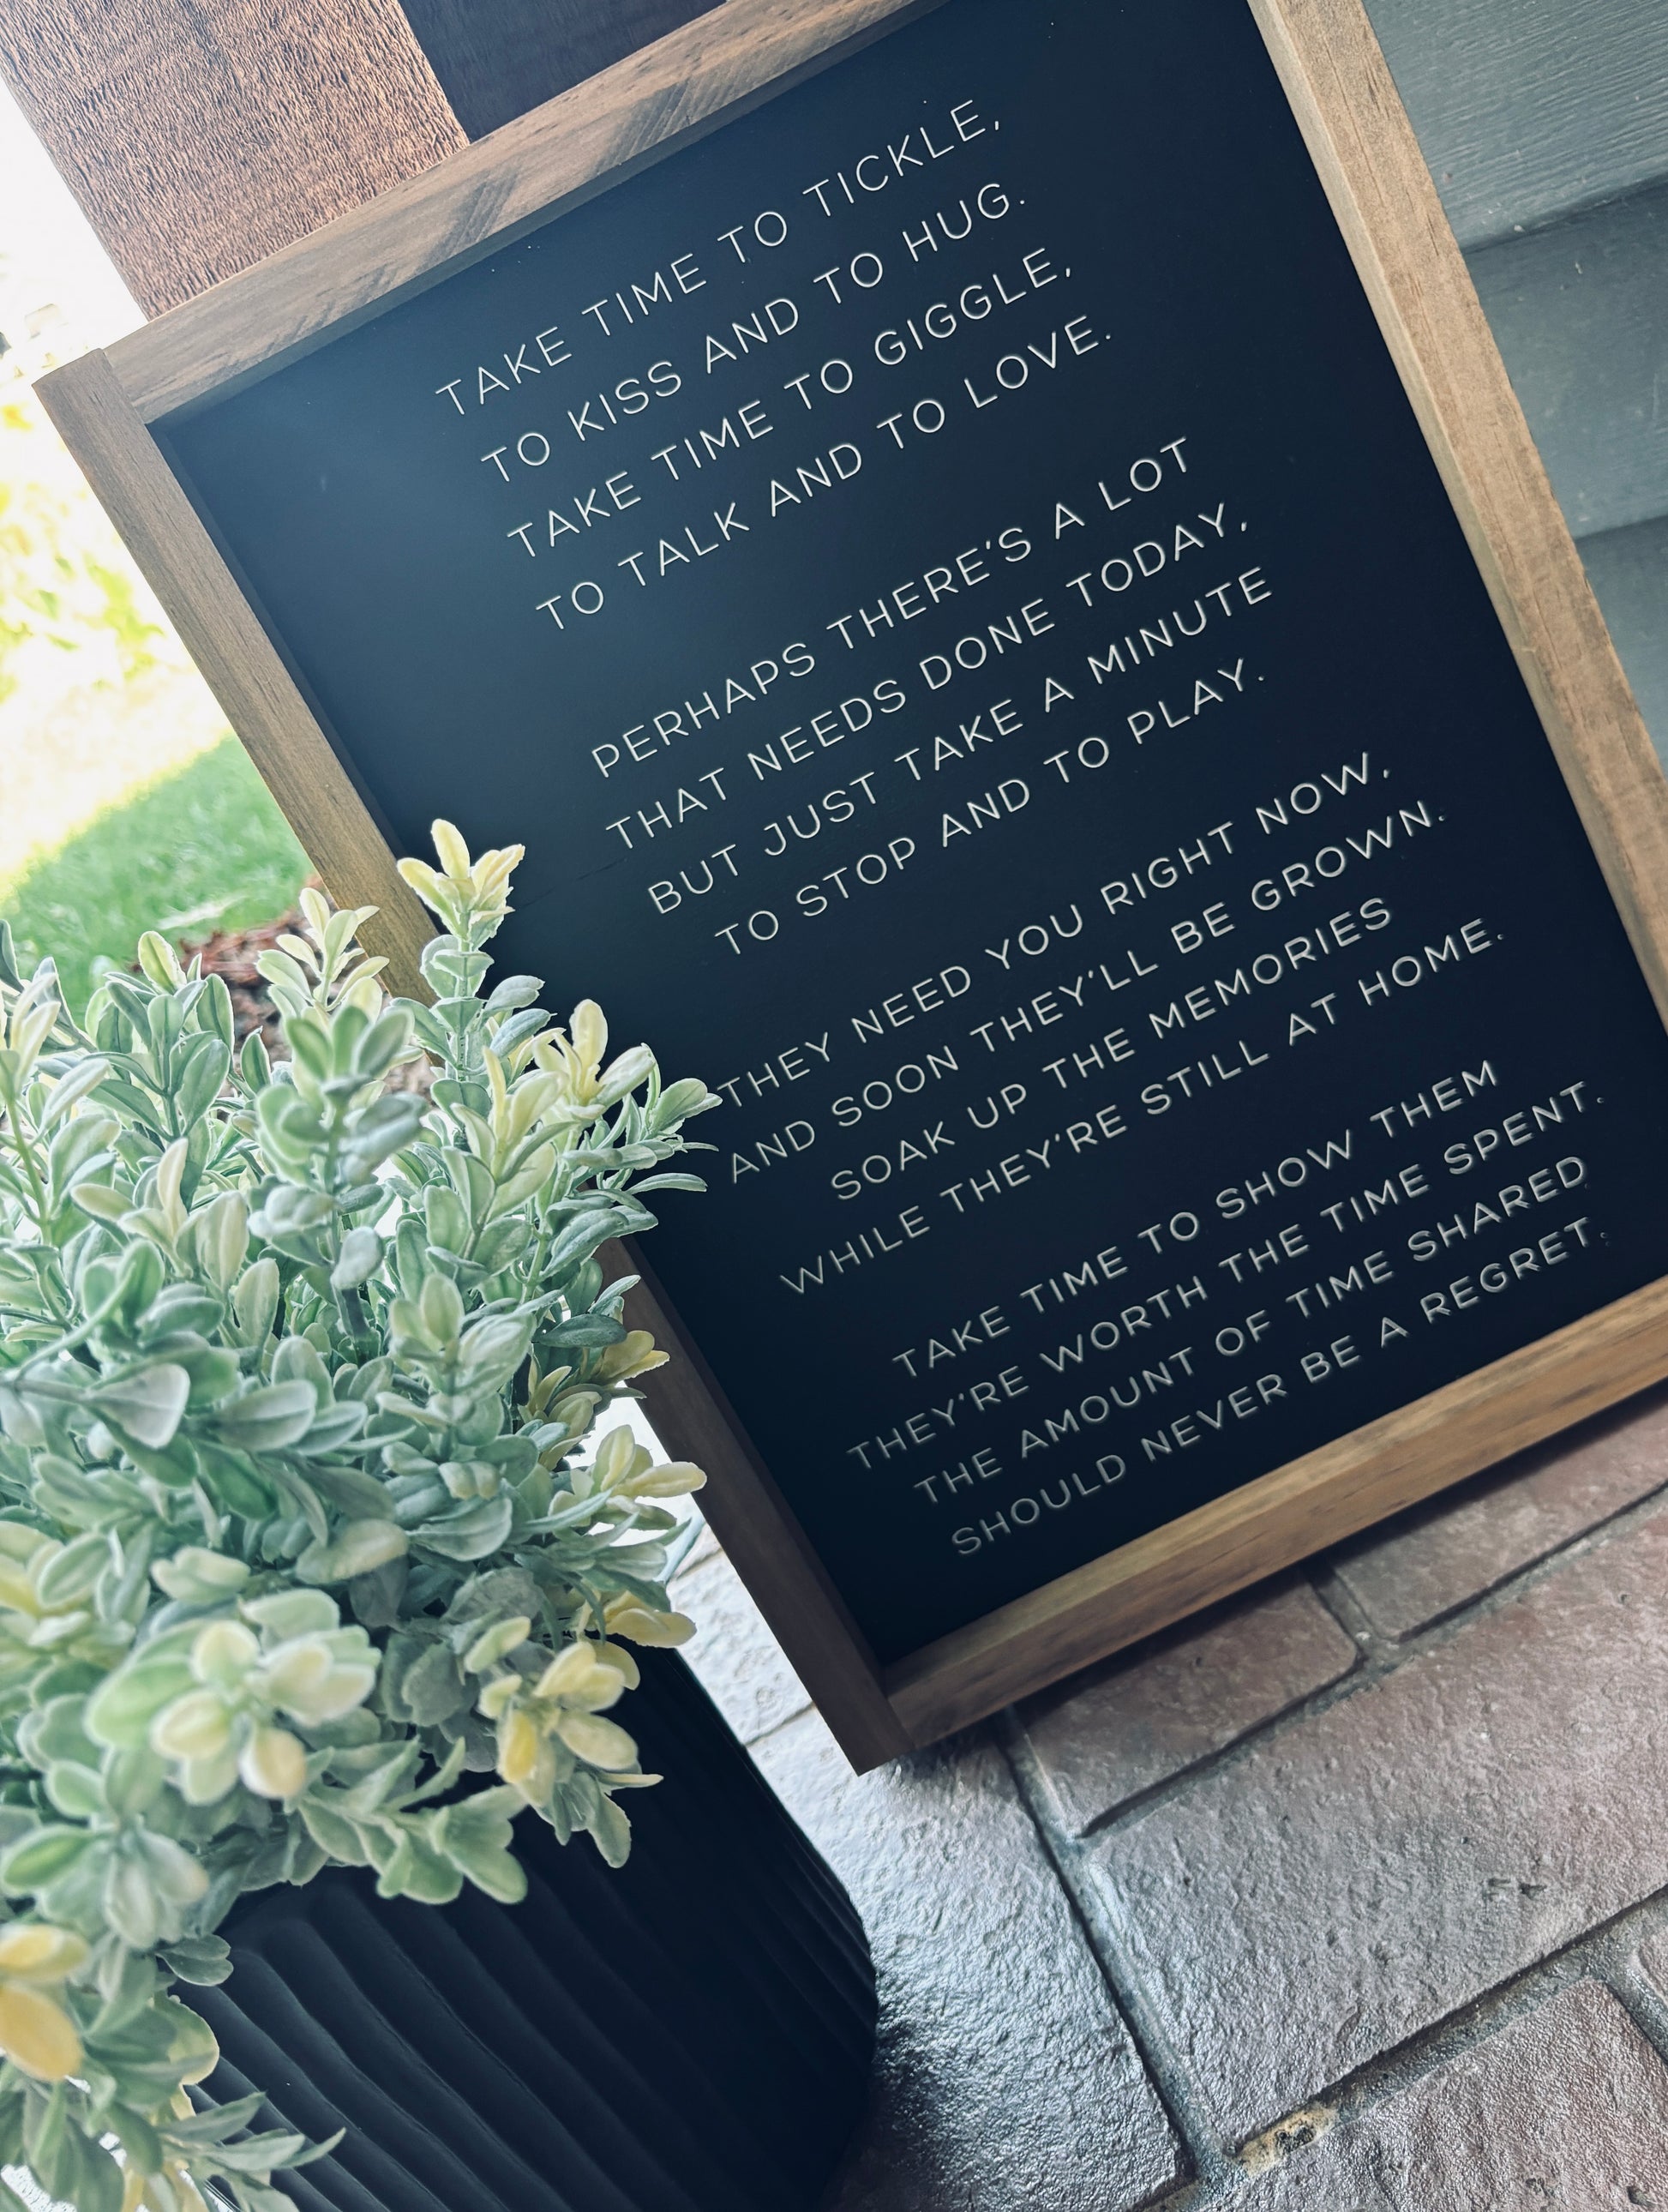 TAKE TIME TO TICKLE,
TO KISS AND TO HUG.
TAKE TIME TO GIGGLE,
TO TALK AND TO LOVE.
PERHAPS THERE'S A LOT
THAT NEEDS DONE TODAY,
BUT JUST TAKE A MINUTE
TO STOP AND TO PLAY.
THEY NEED YOU RIGHT NOW,
AND SOON THEY'LL BE GROWN.
SOAK UP THE MEMORIES
WHILE THEY'RE STILL AT HOME.
TAKE TIME TO SHOW THEM
THEY'RE WORTH THE TIME SPENT.
THE AMOUNT OF TIME SHARED
SHOULD NEVER BE A REGRET.